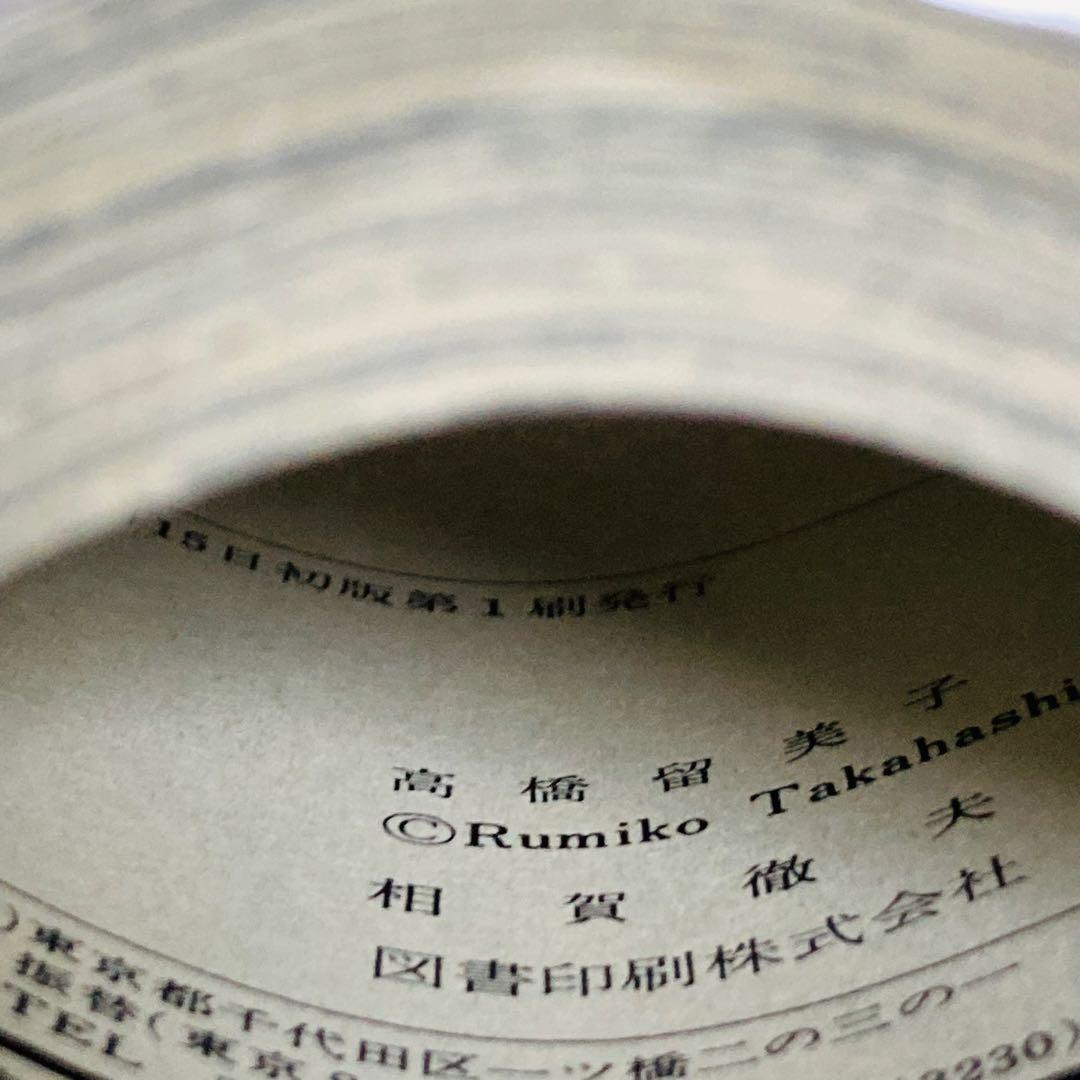 15日初版第1刷発行
高橋留美子
©Rumiko Takahashi
相賀徹夫
図書印刷株式会社
)東京都千代田区一ツ橋二の三の一
振替(東京
TEL
3230)